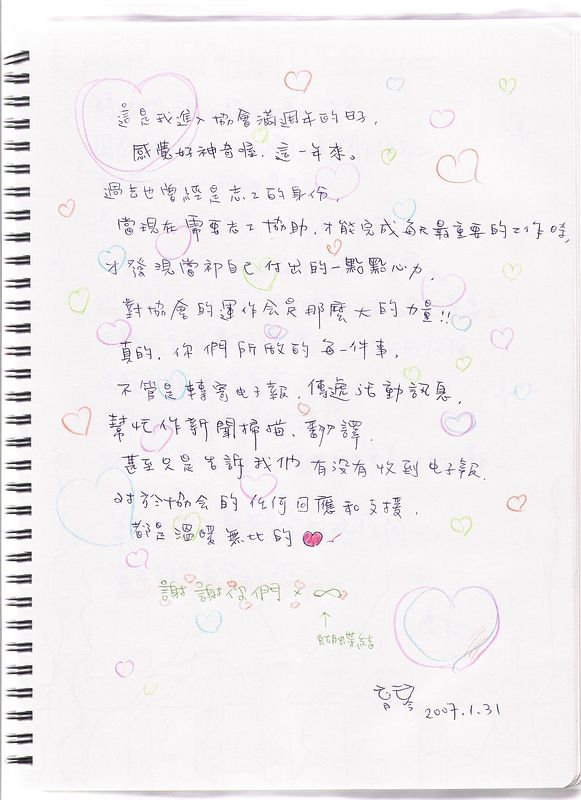 這是我進入協會滿週年的日子,
感覺好神奇喔,這一年來。
過去也曾經是志工的身份,
當現在需要志工協助,才能完成每天最重要的工作時,
才發現當初自己付出的一點點心力,
對協會的運作会是那麼大的力量!!
真的,你們所做的每一件事,
不管是轉寄电子報,傳遞活動訊息,
幫忙作新聞掃描、翻譯,
甚至只是告訴我們 有没有收到电子報,
对於協会的任何回應和支援,
都是溫暖無比的
謝謝你們 × ∞
↑
蝴蝶結
2007.1.31